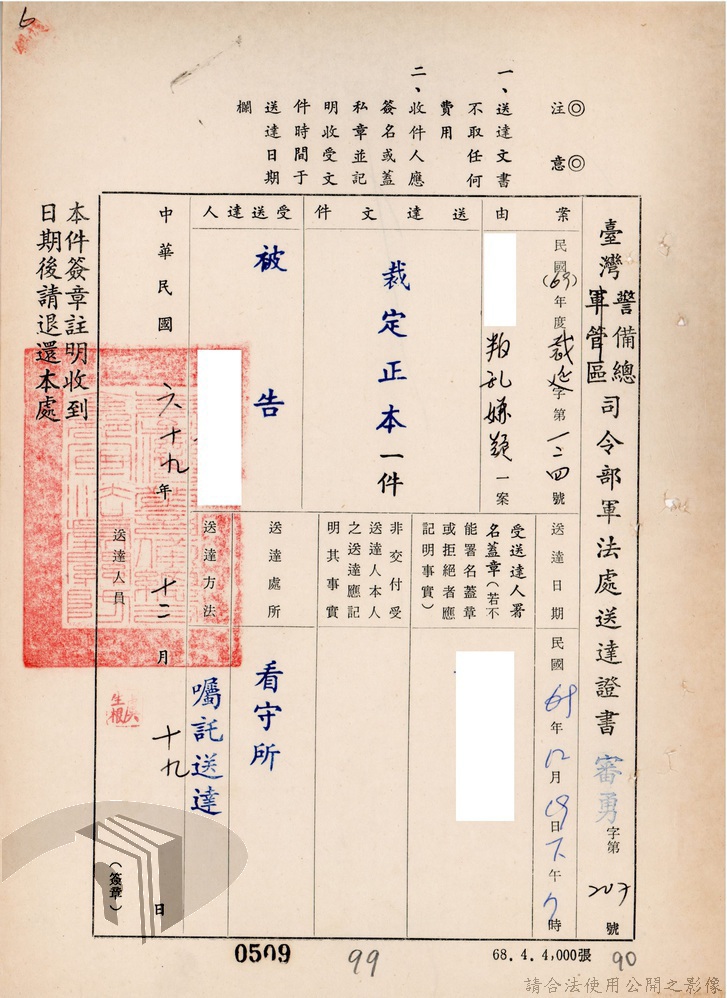 ◎注意◎
一、送達文書不取任何費用
二、收件人應簽名或蓋私章並記明收受文件時間于送達日期欄
臺灣警備總軍管區司令部軍法處送達證書 審勇字第207號
案由
民國(69)年度裁定字第一二四號
叛乱嫌疑一案
送達文件
裁定正本一件
受送達人
被告
送達日期
民國69年12月19日下午 時
受送達人署名蓋章(若不能署名蓋章或拒絕者應記明事實)
非交付受送達人本人之送達應記明其事實
送達處所
看守所
送達方法
囑託送達
中華民國六十九年十二月十九日
送達人員
(簽章)
本件簽章註明收到日期後請退還本處
0509
99
68.4.4,000張
90
6
請合法使用公開之影像